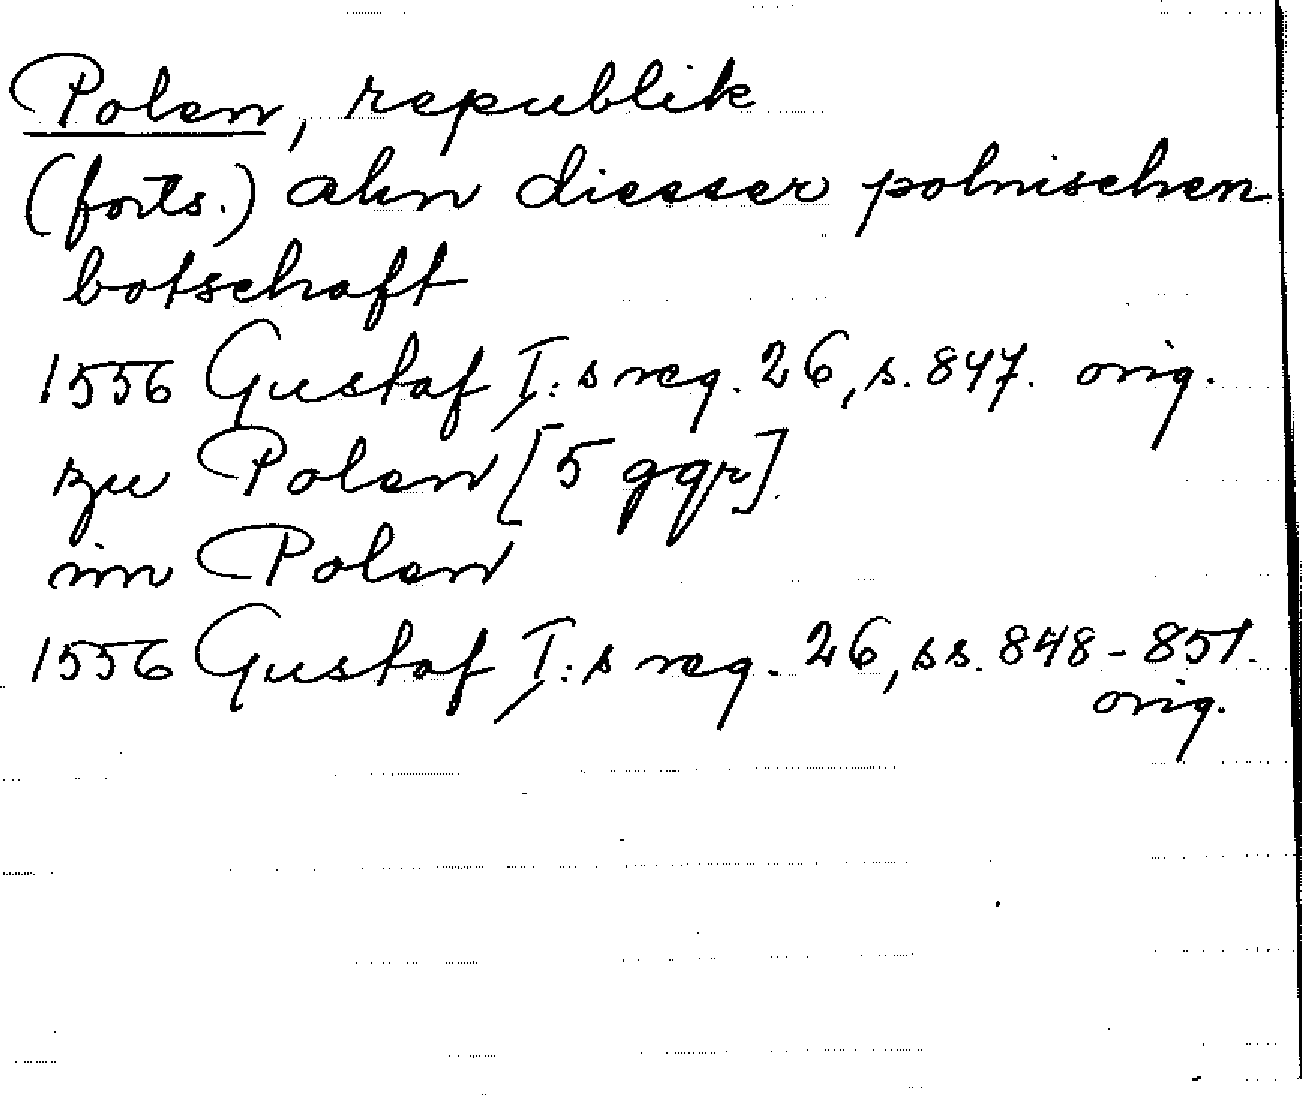 Polen, republik
(forts.) ahn diesser polnischen
botschaft
1556 Gustaf I:s reg. 26, s. 847. orig.
zu Polen [5 ggr].
im Polen
1556 Gustaf I:s reg. 26, ss. 848-851.
orig.